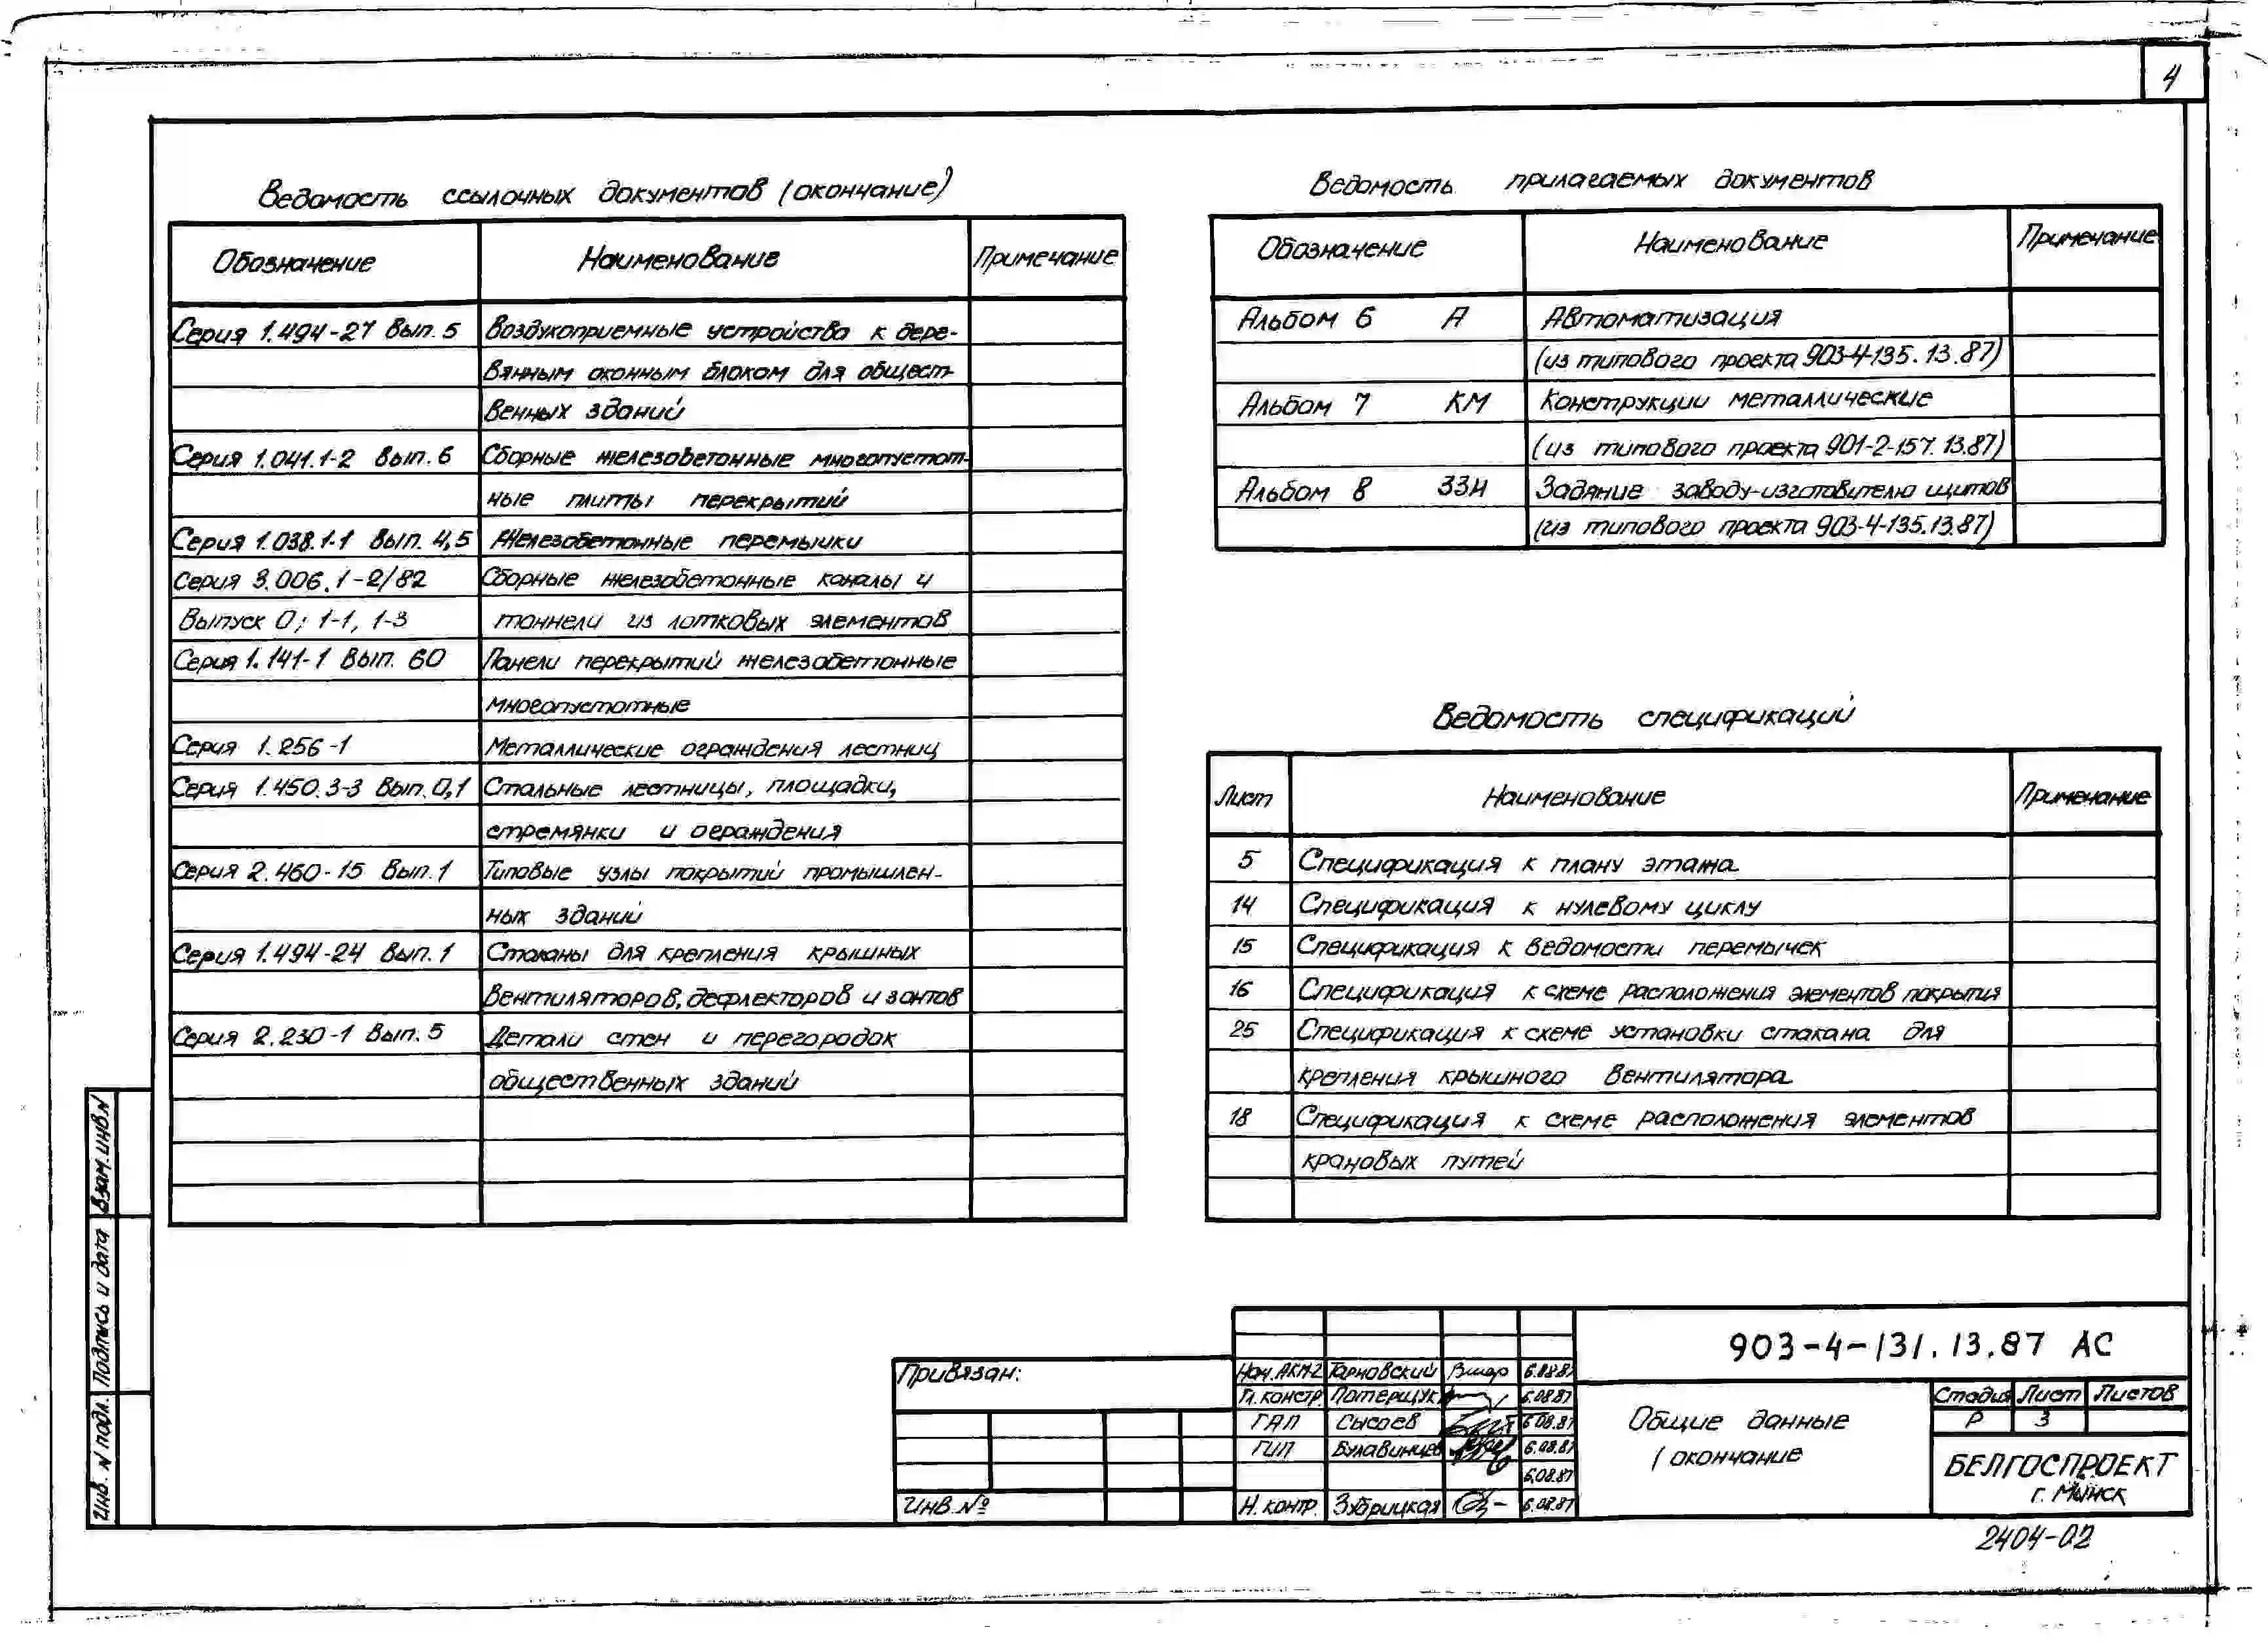 4
Ведомость ссылочных документов (окончание)
Обозначение Наименование Примечание
Серия 1.494-27 Вып. 5 Воздухоприемные устройства к дере-
вянным оконным блокам для общест-
венных зданий
Серия 1.041.1-2 Вып. 6 Сборные железобетонные многопустот-
ные плиты перекрытий
Серия 1.038.1-1 Вып. 4,5 Железобетонные перемычки
Серия 3.006.1-2/82 Сборные железобетонные каналы и
Выпуск 0; 1-1, 1-3 тоннели из лотковых элементов
Серия 1.141-1 Вып. 60 Панели перекрытий железобетонные
многопустотные
Серия 1.256-1 Металлические ограждения лестниц
Серия 1.450.3-3 Вып. 0,1 Стальные лестницы, площадки,
стремянки и ограждения
Серия 2.460-15 Вып. 1 Типовые узлы покрытий промышлен-
ных зданий
Серия 1.494-24 Вып. 1 Стаканы для крепления крышных
вентиляторов, дефлекторов и зонтов
Серия 2.230-1 Вып. 5 Детали стен и перегородок
общественных зданий
Ведомость прилагаемых документов
Обозначение Наименование Примечание
Альбом 6 А Автоматизация
(из типового проекта 903-4-135.13.87)
Альбом 7 КМ Конструкции металлические
(из типового проекта 901-2-157.13.87)
Альбом 8 ЗЗИ Задание заводу-изготовителю щитов
(из типового проекта 903-4-135.13.87)
Ведомость спецификаций
Лист Наименование Примечание
5 Спецификация к плану этажа
14 Спецификация к нулевому циклу
15 Спецификация к ведомости перемычек
16 Спецификация к схеме расположения элементов покрытия
25 Спецификация к схеме установки стакана для
крепления крышного вентилятора
18 Спецификация к схеме расположения элементов
крановых путей
Взам.инв.N
Подпись и дата
Инв. N подл.
Привязан:
Инв. №
Нач. АКМ-2 Тарновский 6.08.87
Гл. констр. Потерщук 6.08.87
ГАП Сысоев 6.08.87
ГИП Булавинцев 6.08.87
6.08.87
Н. контр. Зубрицкая 6.08.87
903-4-131.13.87 АС
Общие данные
(окончание
Стадия Лист Листов
Р 3
БЕЛГОСПРОЕКТ
г. Минск
2404-02